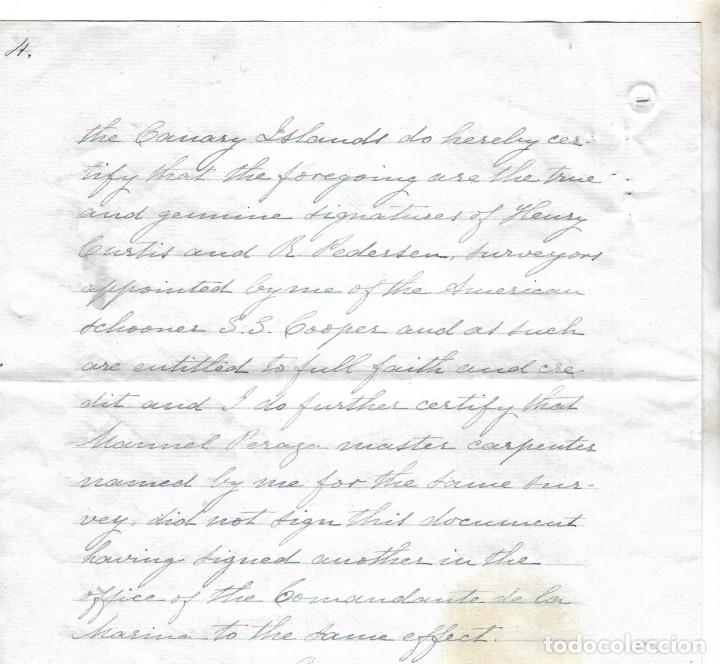 4.
the Canary Islands do hereby cer-
tify that the foregoing are the true
and genuine signatures of Henry
Curtis and R. Pedersen, surveyors
appointed by me of the American
schooner S.S. Cooper and as such
are entitled to full faith and cre-
dit and I do further certify that
Manuel Peraza master carpenter
named by me for the same sur-
vey, did not sign this document
having signed another in the
office of the Comandante de la
Marina to the same effect.
todocoleccion.net